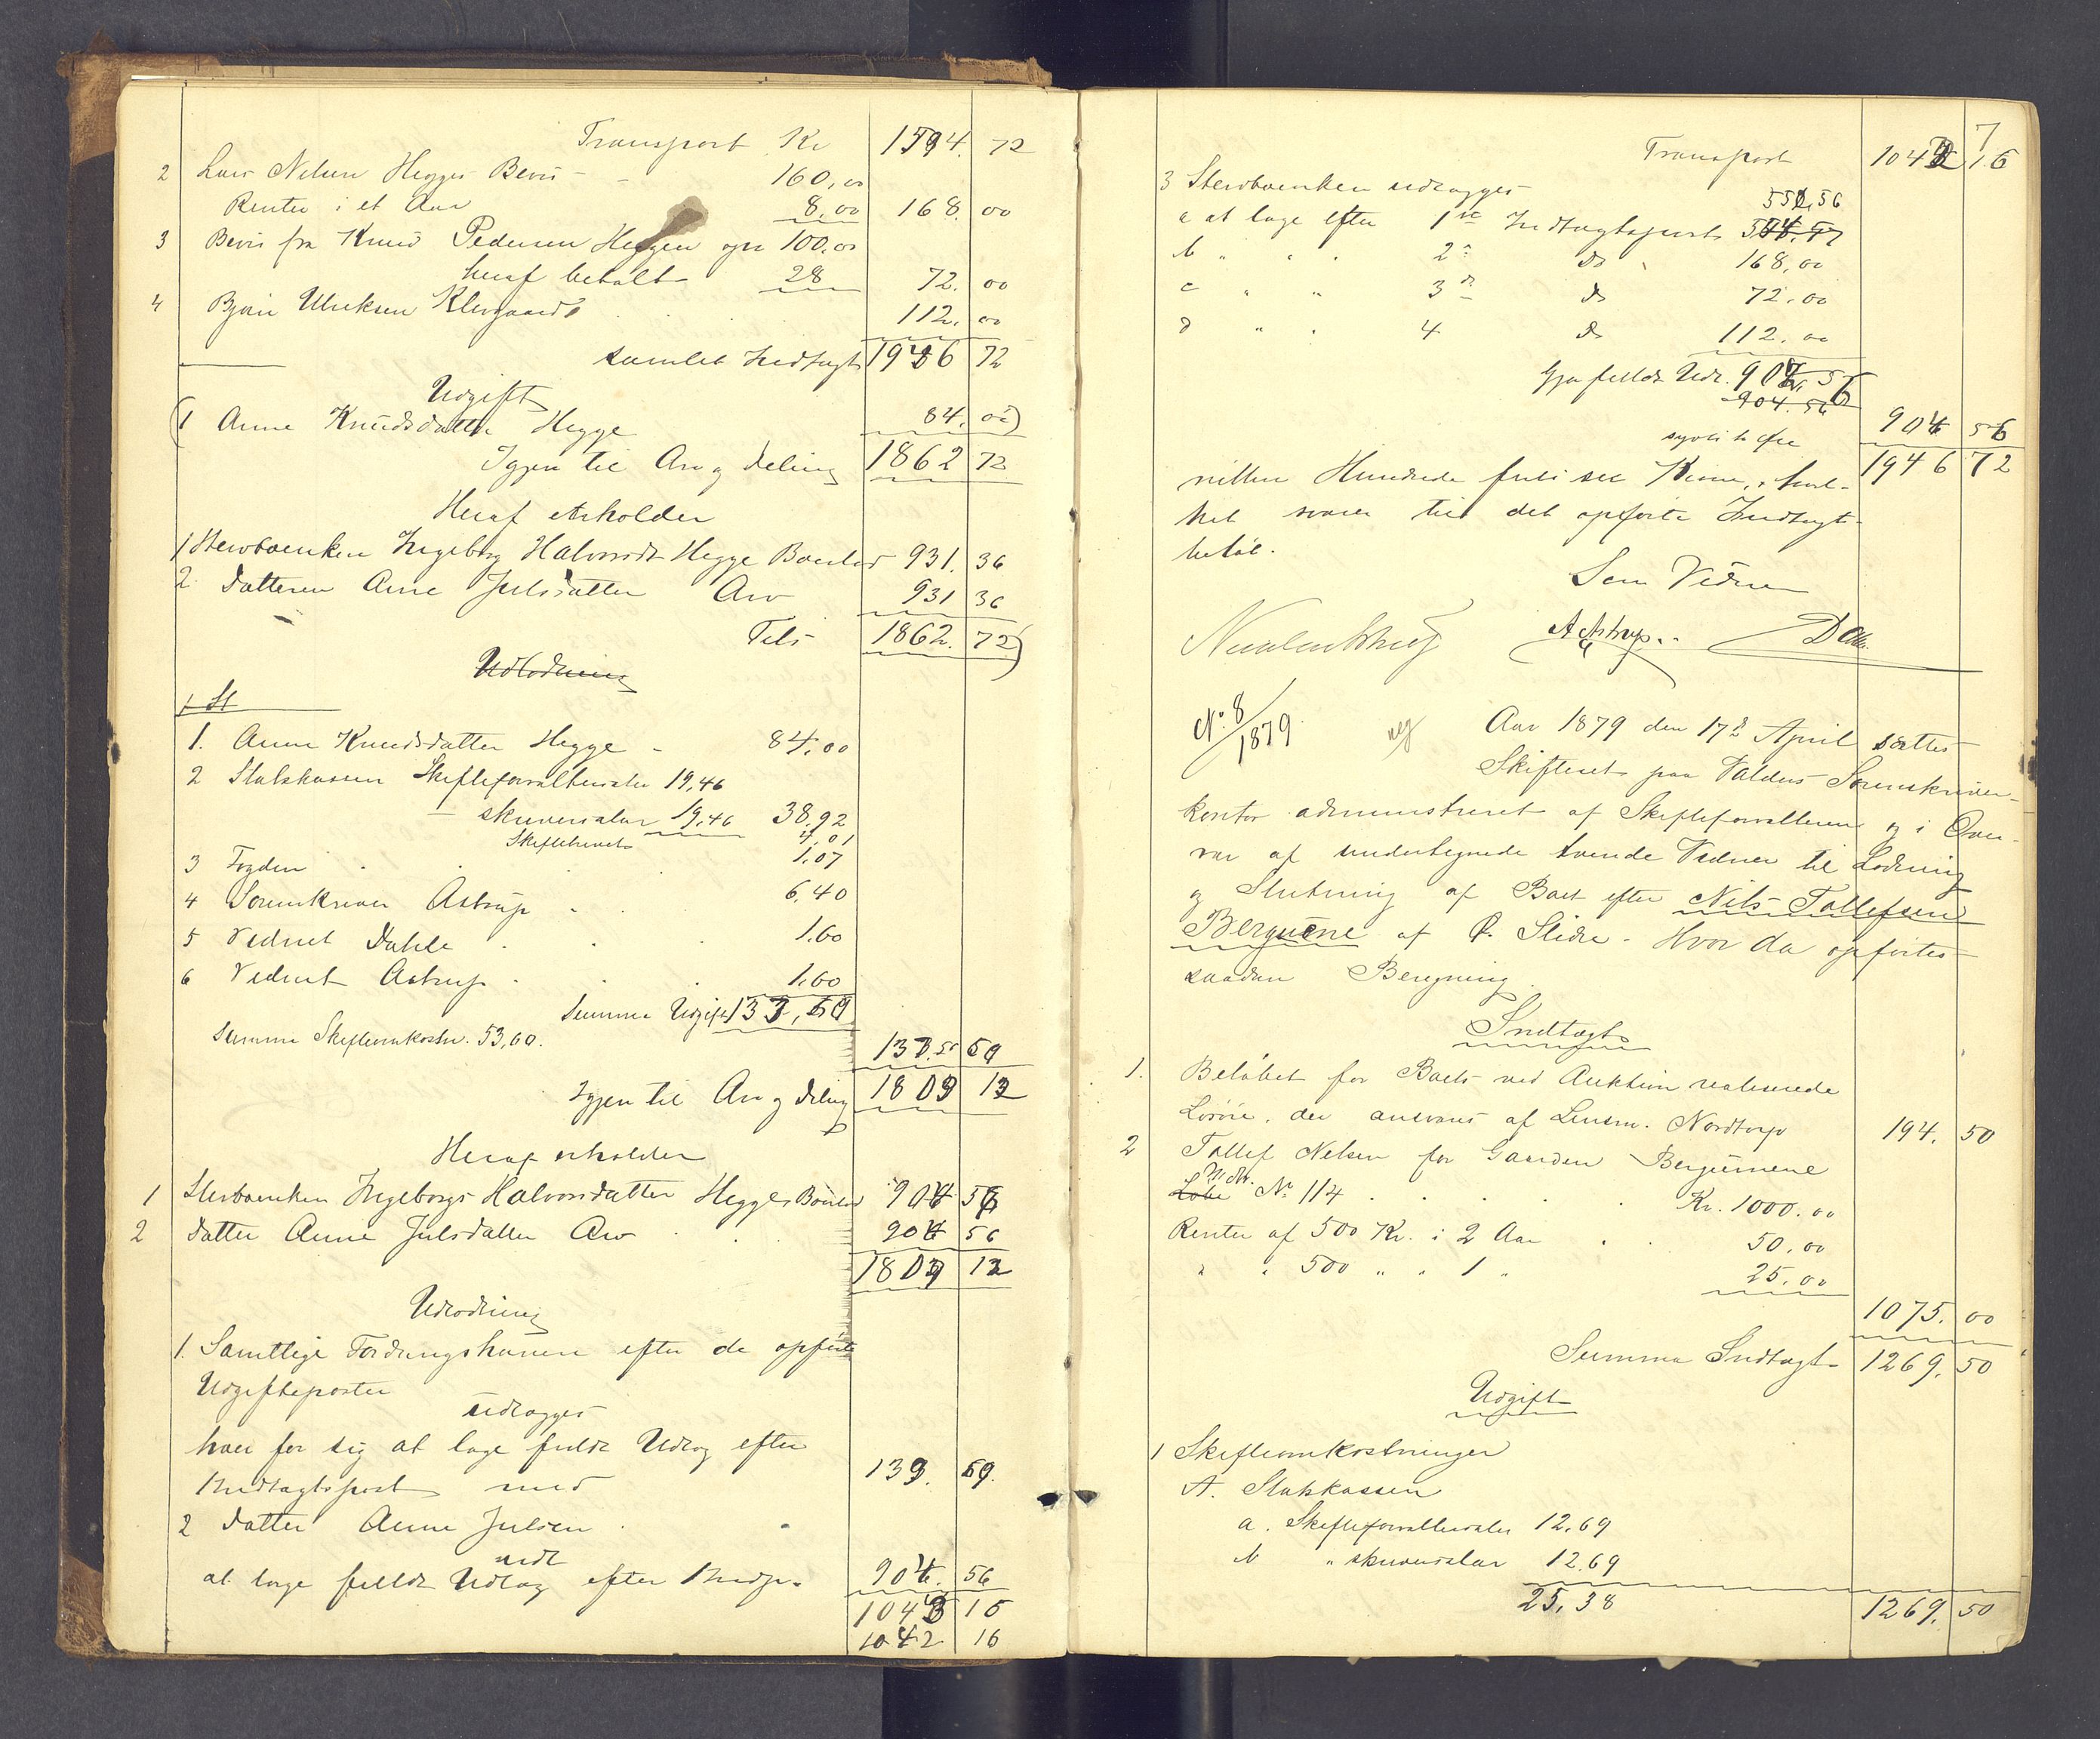 Transport Kr 1594. 72
2 Lars Nelsen Hegges Bevis 160,00
Renter i et Aar 8,00 168. 00
3 Bevis fra Knud Pedersen Heggen opr 100,00
heraf betalt 28 72. 00
4 Bjørn Ulriksen 112. 00
samlet Indtægt 1946 72
Udgift
(1 Anne Knudsdatter Hegge 84. 00)
Igjen til Arv og Deling 1862 72
Heraf erholder
1 Stervboenken Ingeborg Halvorsdtr Hegge Boeslod 931. 36
2. Datteren Anne Julsdatter Arv 931 36
Tils 1862. 72)
Udlodning
1 St
1. Anne Knudsdatter Hegge 84,00
2 Statskassen Skifteforvaltersalær 19,46
— skriversalær 19,46 38,92
Skiftebrevet 4,01
3 Fogden 1,07
4 Sorenskriver Astrup 6,40
5 Vidnet Dahle 1.60
6 Vidnet Astrup 1.60
Summa Udgift
Summa Skifteomkostn. 53,60.
Igjen til Arv og Deling 1809 12
Heraf erholder
1 Stervboenken Ingeborg Halvorsdatter Hegges Boeslod 904 56
2 Datter Anne Julsdatter Arv 904 56
1809 12
Udlodning
1. Samtlige Fordringshavere efter de opførte
Udgiftsposter
udlægges
hver for sig at tage fuldt Udlæg efter
Indtægtspost med
2 Datter Anne Julsen
at tage fuldt Udlæg efter Indtp. 904. 56
1042 16
Transport 1042 16
3 Stervboenken udlægges 551,56
a at tage efter 1ste Indtægtspost
b " " " 2d Do 168,00
c " " 3d Do 72.00
d " " 4 Do 112.00
Gjør fuldt Udl.
904. 56
904 56
sytti to Øre
1946 72
nitten Hundrede firti sex Kroner, hvil-
ket svarer til det opførte Indtægt-
beløb.
Som Vidner
Astrup. Dahle
No. 8/1879 Aar 1879 den 17de April sattes
Skifteret paa Valders Sorenskriver-
kontor administreret af Skifteforvalteren og i Over-
vær af undertegnede tvende Vidner til Lodning
og Slutning af Boet efter Nils Tollefsen
Bergene af Ø. Slidre. Hvor da opførtes
saadan Beregning.
Indtægt
1. Beløbet for Boets ved Auktion realiserede
Løsøre, der ansvares af Lensm. Nordtorp 194. 50
2 Tollef Nelsen for Gaarden Bergene
M.Nr.
Løbe No 114 Kr. 1000.00
Renter af 500 Kr. i 2 Aar 50.00
" " 500 " " 1 " 25.00
1075. 00
Summa Indtægt 1269. 50
Udgift
1 Skifteomkostninger
A. Statskassen
a. Skifteforvaltersalær 12.69
b " skriversalær 12.69
25,38 1269. 50